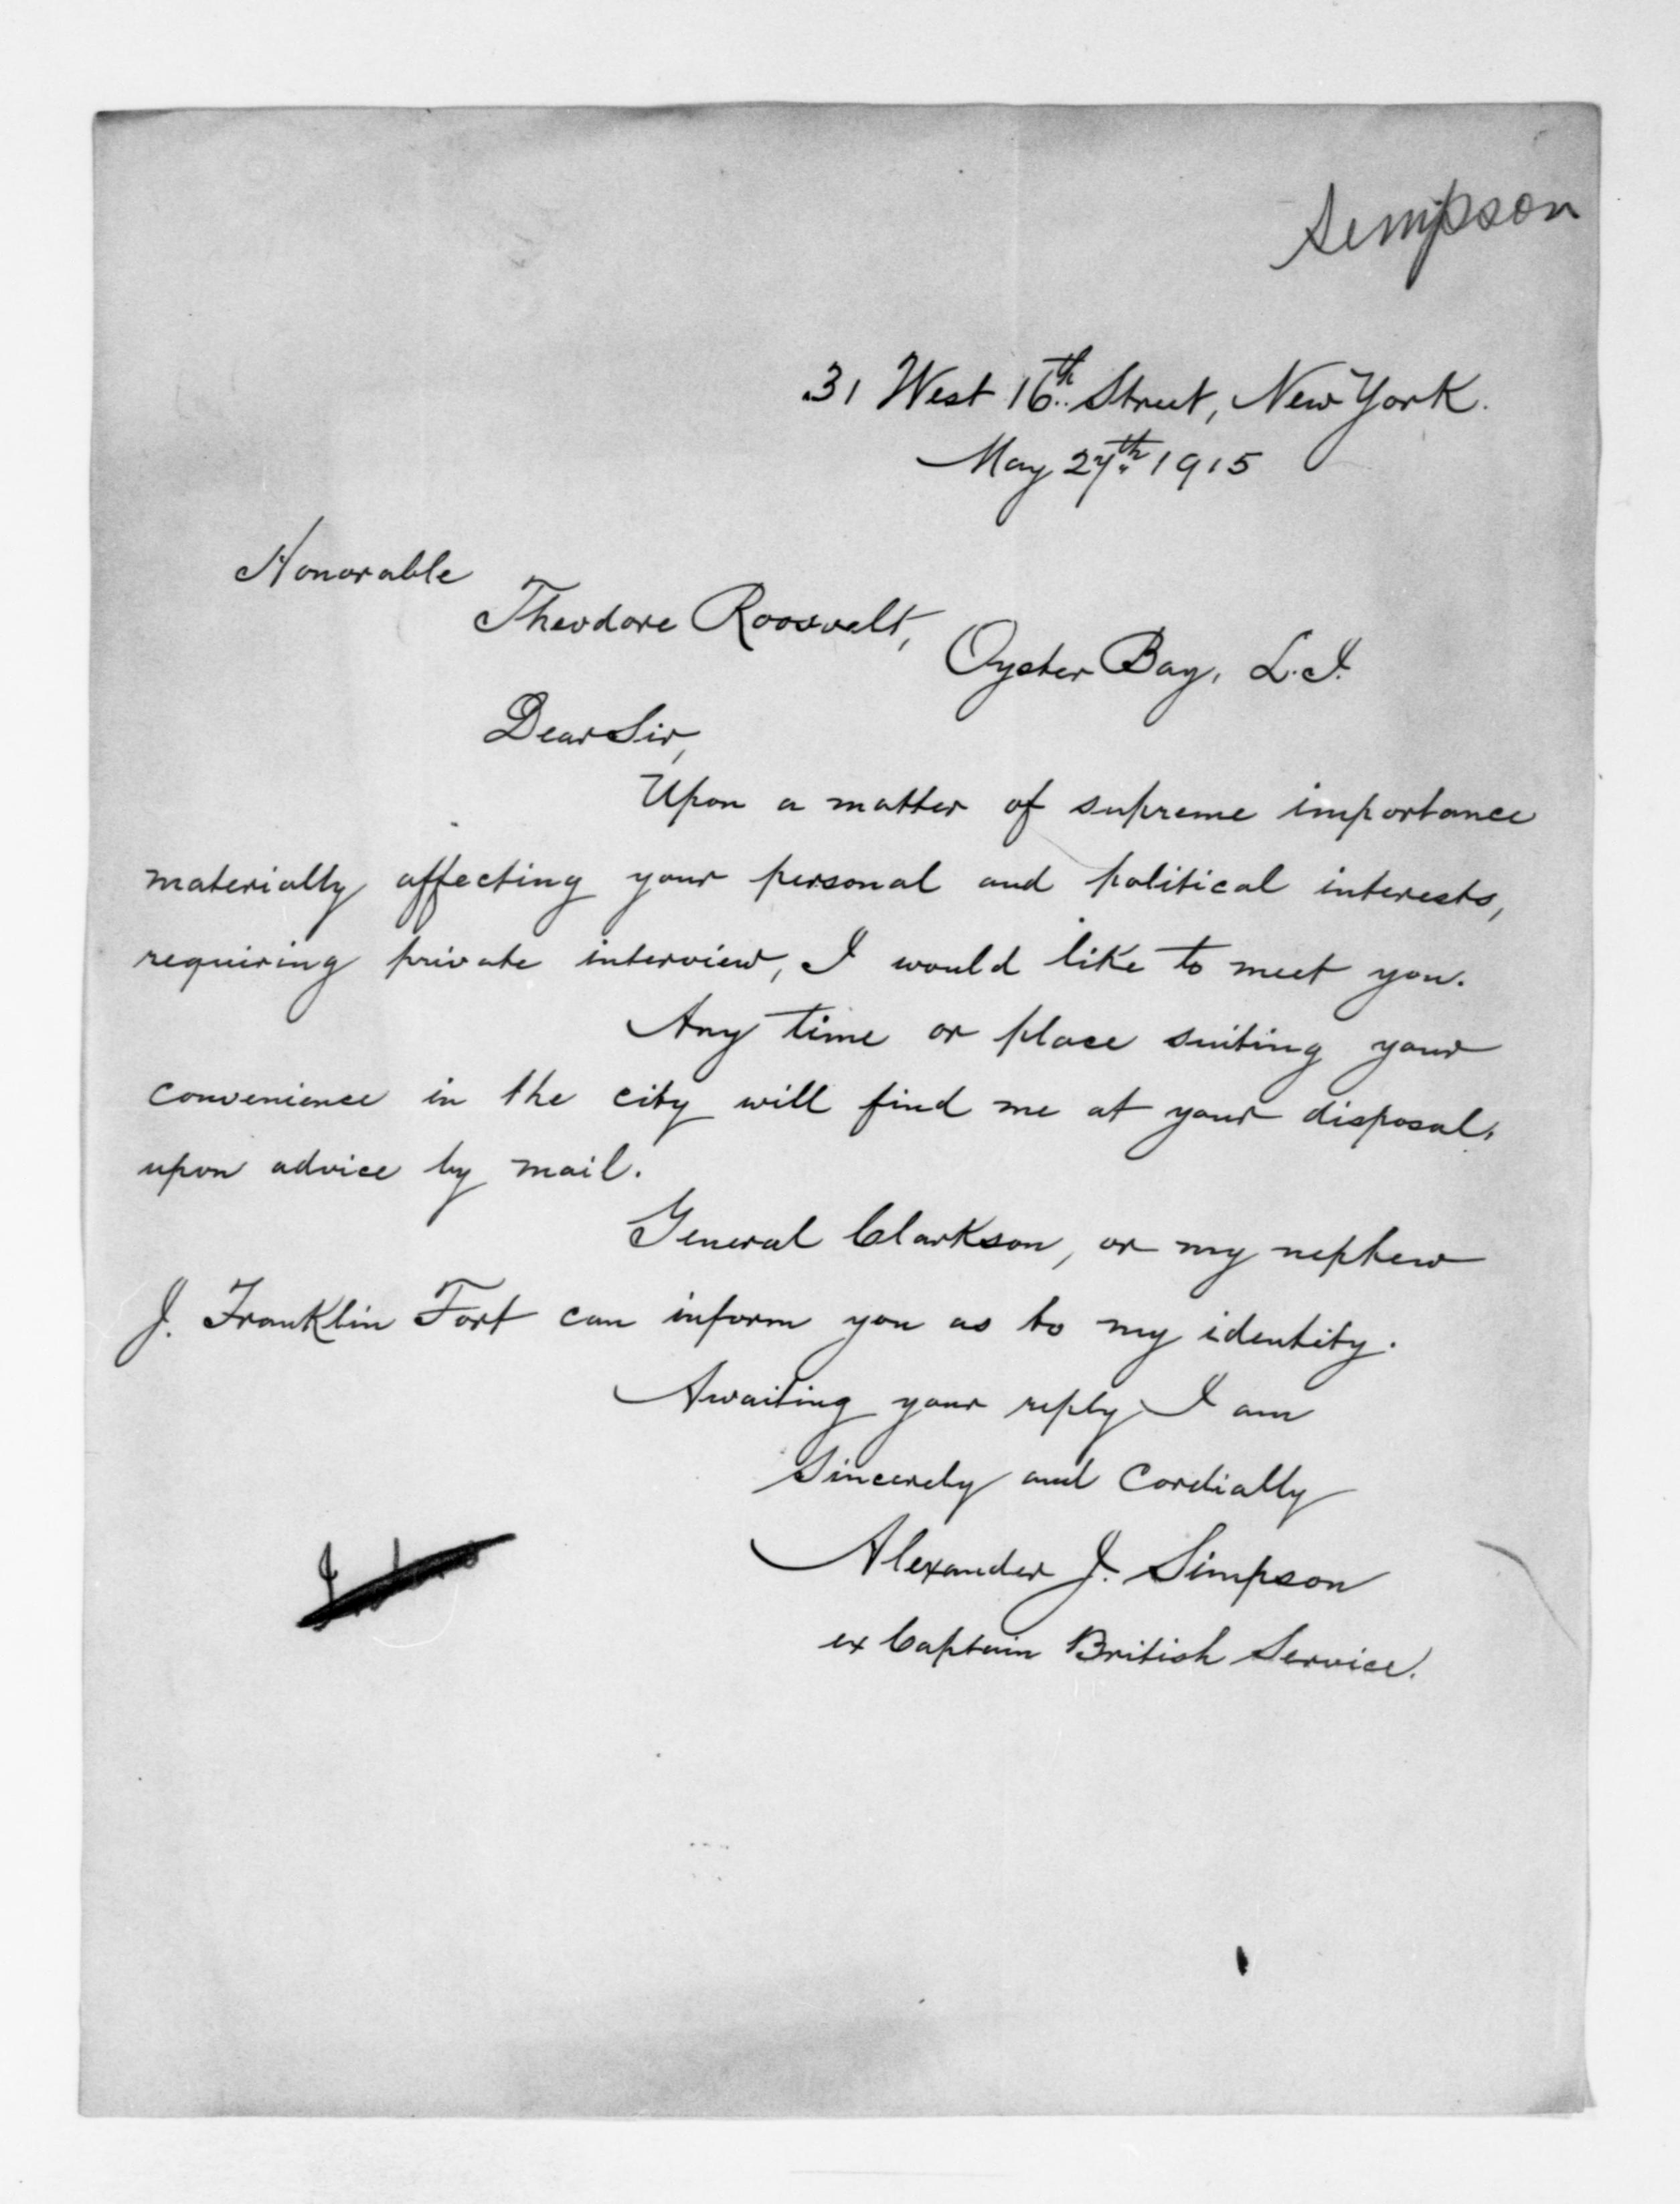 Simpson
31 West 16th Street, New York.
May 27th 1915
Honorable
Theodore Roosevelt,
Oyster Bay, L.I.
Dear Sir,
Upon a matter of supreme importance
materially affecting your personal and political interests,
requiring private interview, I would like to meet you.
Any time or place suiting your
convenience in the city will find me at your disposal,
upon advice by mail.
General Clarkson, or my nephew
J. Franklin Fort can inform you as to my identity.
Awaiting your reply, I am
Sincerely and Cordially
Alexander J. Simpson
ex Captain British Service.